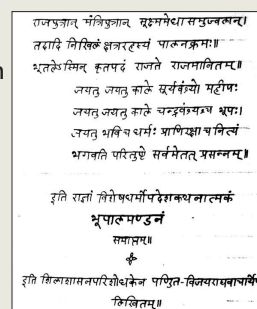 राजपुत्रान् मंत्रिपुत्रान् सूक्ष्ममेधासमुज्वलान्।
तदादि निखिलं क्षत्ररहस्यं पालनक्रमः॥
भूतलेऽस्मिन् कृतपदं राजते राजमानितम्॥
जयतु जयतु काले सूर्यवंश्यो महीपः
जयतु जयतु काले चन्द्रवंश्यश्च भूपः।
जयतु भुवि च धर्मः प्राणिरक्षा च नित्यं
भगवति परितुष्टे सर्वमेतत् प्रसन्नम्॥
इति राज्ञां विशेषधर्मोपदेशकथनात्मकं
भूपालमण्डनं
समाप्तम्॥
इति शिलाशासनपरिशोधकेन पण्डित-विजयराघवाचार्येण
लिखितम्॥